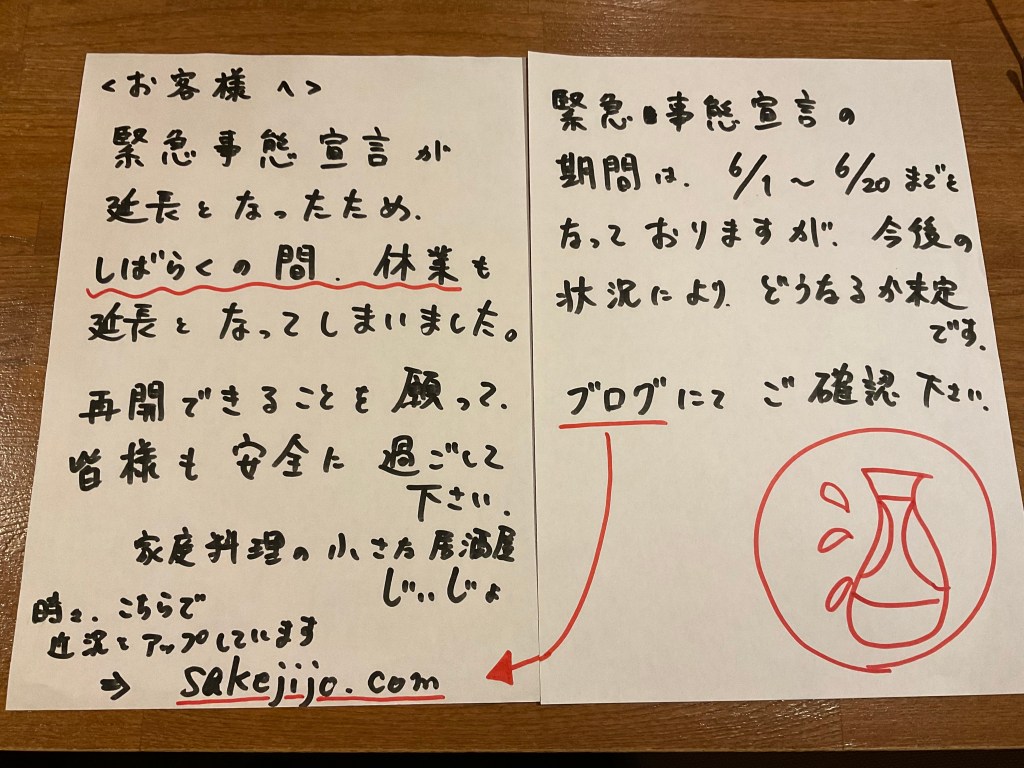 <お客様へ>
緊急事態宣言が
延長となったため、
しばらくの間、休業も
延長となってしまいました。
再開できることを願って、
皆様も安全に過ごして
下さい。
家庭料理の小さな居酒屋
じぃじょ
時々、こちらで
近況をアップしています
⇒ sakejijo.com
緊急事態宣言の
期間は、6/1〜6/20までと
なっておりますが、今後の
状況により、どうなるか未定
です。
ブログにてご確認下さい。